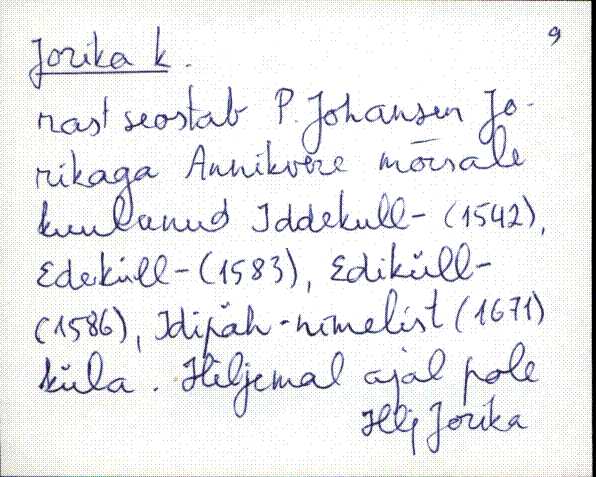 9
Jorika k.
nast seostab P. Johansen Jo-
rikaga Annikvere mõisale
kuulunud Iddekull- (1542),
Edeküll- (1583), Ediküll-
(1586), Idipäh-nimelist (1671)
küla. Hiljemal ajal pole
Jorika